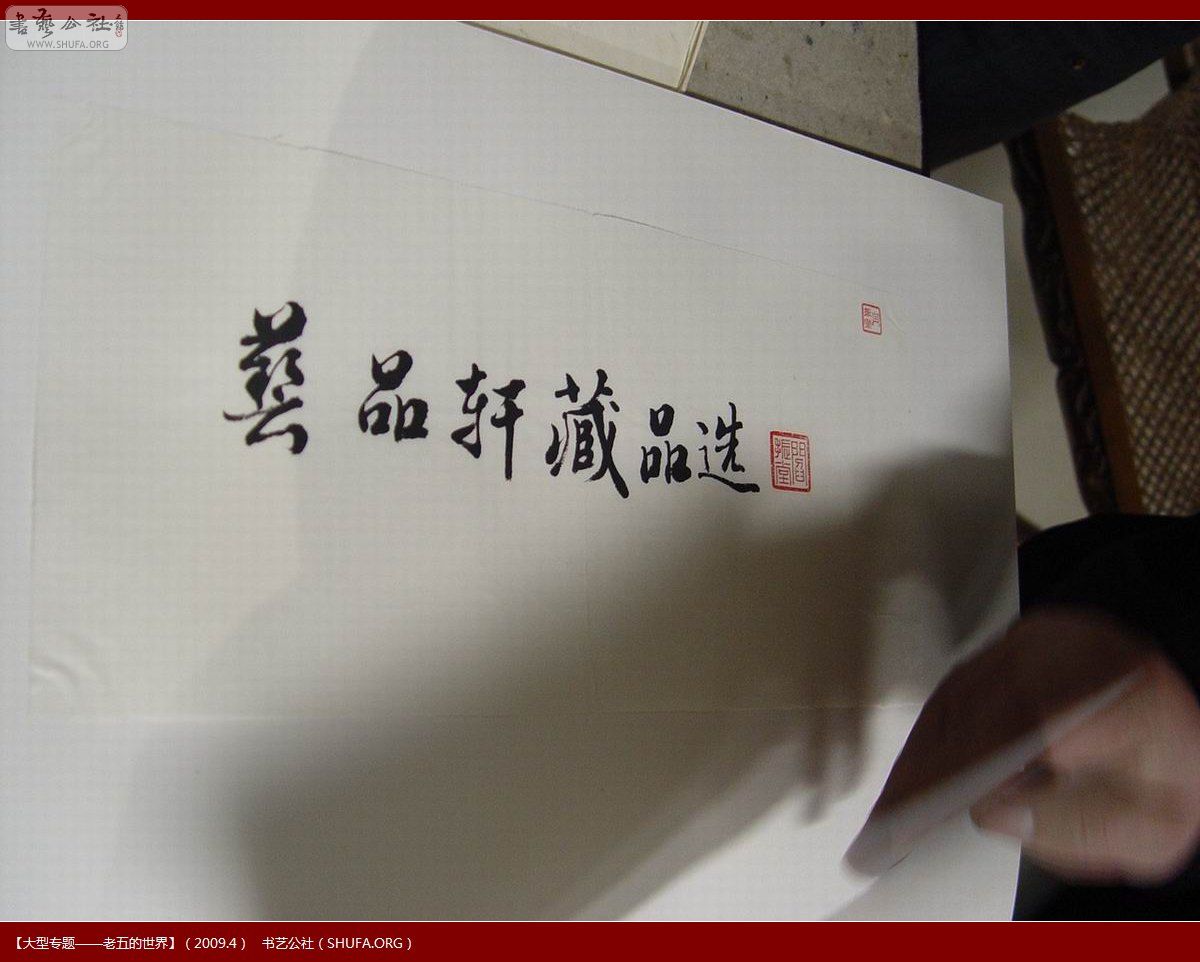 书艺公社
WWW.SHUFA.ORG
藝品轩藏品选
【大型专题——老五的世界】（2009.4） 书艺公社（SHUFA.ORG）